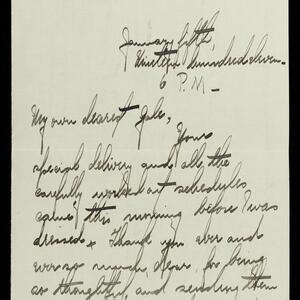 January fifth,
Nineteen hundred eleven.
6 P.M.
My own dearest Jule,
Yours
special delivery and all the
carefully worked out schedules
came this morning before I was
dressed. Thank you ever and
ever so much, dear, for being
so thoughtful, and sending them